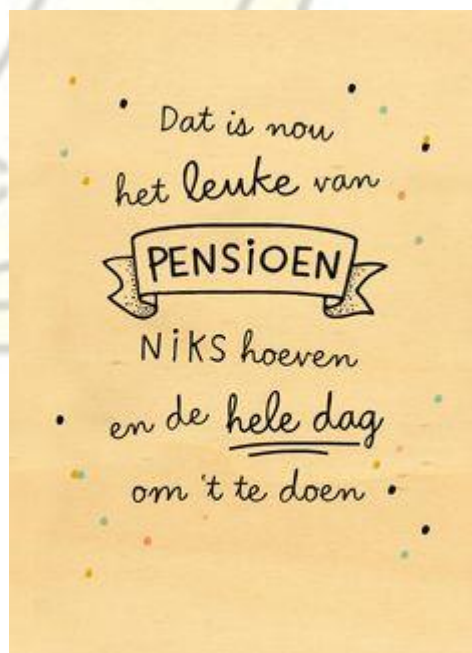 Dat is nou
het leuke van
PENSiOEN
NiKS hoeven
en de hele dag
om 't te doen